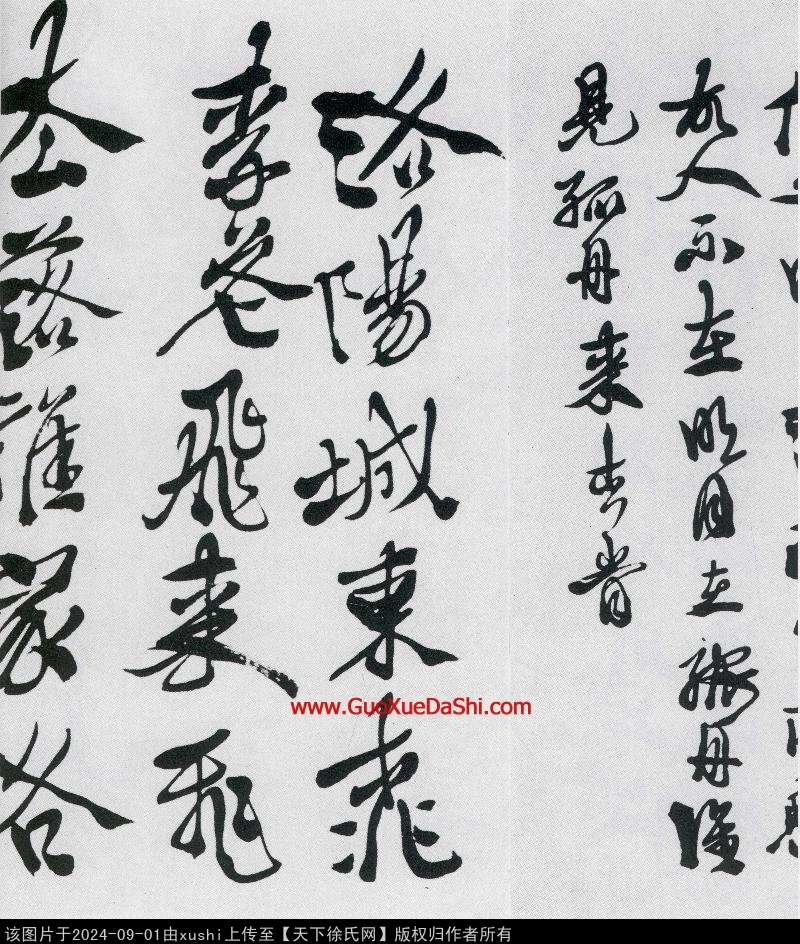 故人不在明月在舟誰
見孤舟来去旹
洛陽城東桃
李花飛来飛
去落誰家洛
www.GuoXueDaShi.com
该图片于2024-09-01由xushi上传至【天下徐氏网】版权归作者所有